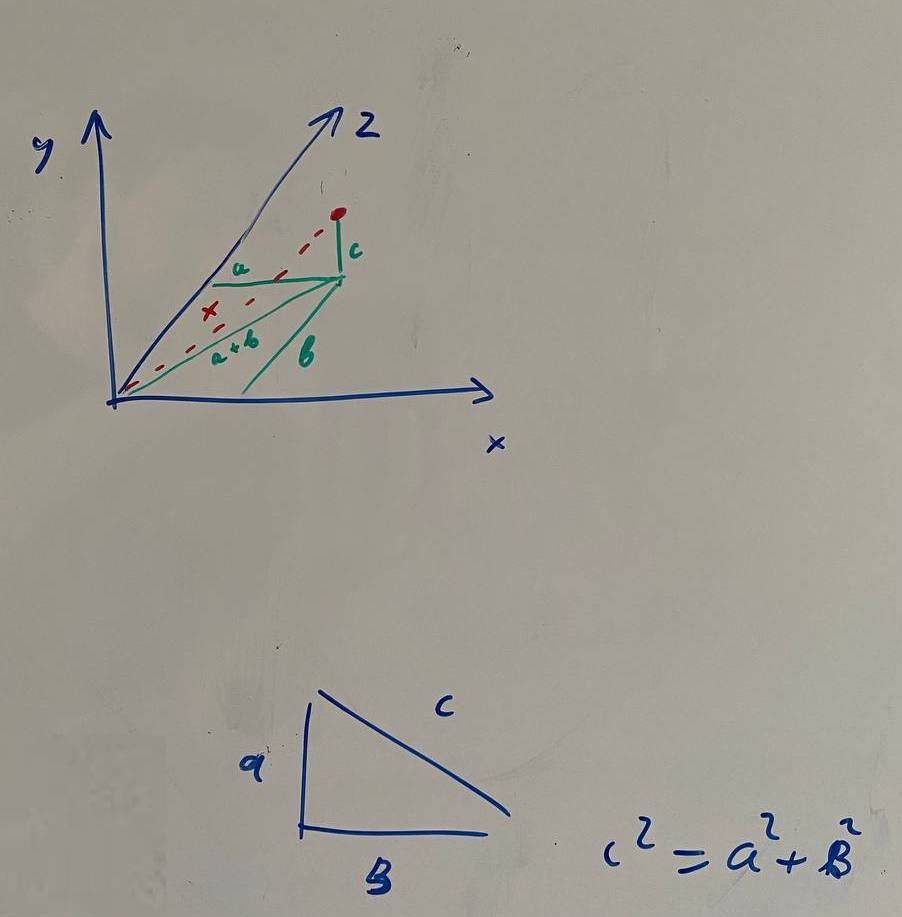 y
z
a
c
x
a + b
b
x
c
a
B
c² = a² + B²